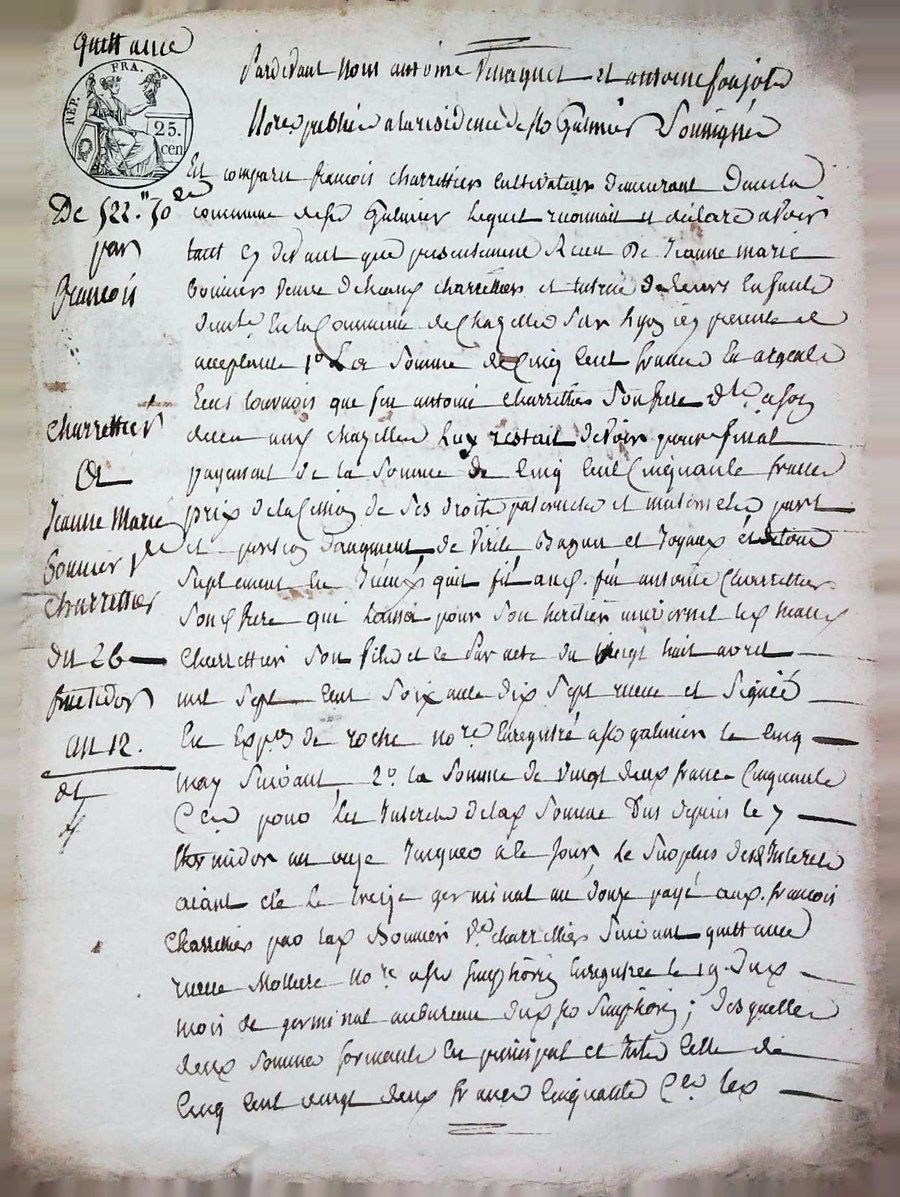 quittance
REP. FRA.
25.
cen
De 522.ᶠʳ 50
par
françois
Charrettier
Et
Jeanne Marie
bonnier Vve
Charrettier
du 26
fructidor
an 12.
et
Pardevant Nous antoine et antoine
Nores publics a la residence de st Galmier Soussignés
Est comparu françois charrettier cultivateur demeurant dans la
commune de st Galmier lequel reconnait et déclare avoir
tant cy devant que presentement Receu De Jeanne marie
bonnier veuve charrettier et tutrice de leurs Enfants
En la Commune de Chazelles Sur Lyon icy presente et
acceptante 1° La Somme de Cinq Cent francs En argent
que feu antoine Charrettier Son frere
chazelles Luy restait devoir pour final
payement de la Somme de Cinq Cent Cinquante francs
prix de la Cession de Ses droits paternels et maternels part
et portion d'augment, de Virile Bagues et Joyaux et de tout
Suplement qu'il fit aud. feu antoine Charrettier
Son frere qui Laissa pour Son heritier universel
Charrettier Son fils et ce Par acte du Vingt huit avril
mil Sept Cent Soixante dix Sept receue et Signée
En Expon de roche nore Enregistré a st galmier le Cinq
may Suivant, 2° la Somme de Vingt deux francs Cinquante
Ces pour Les Interets de lad. Somme Dus depuis le 7
thermidor an onze Jusques a ce Jour, Le Surplus des Interets
aiant été Le treize germinal an douze payé aud. françois
Charrettier par lad. Bonnier Ve charrettier Suivant quittance
receue Moliere nore a st Simphorien Enregistrée le 19 Dud.
mois de germinal au bureau Dud. st Simphorien; Desquelles
deux Sommes formants En principal et Interets Celle de
Cinq Cent vingt deux francs Cinquante Ces led.